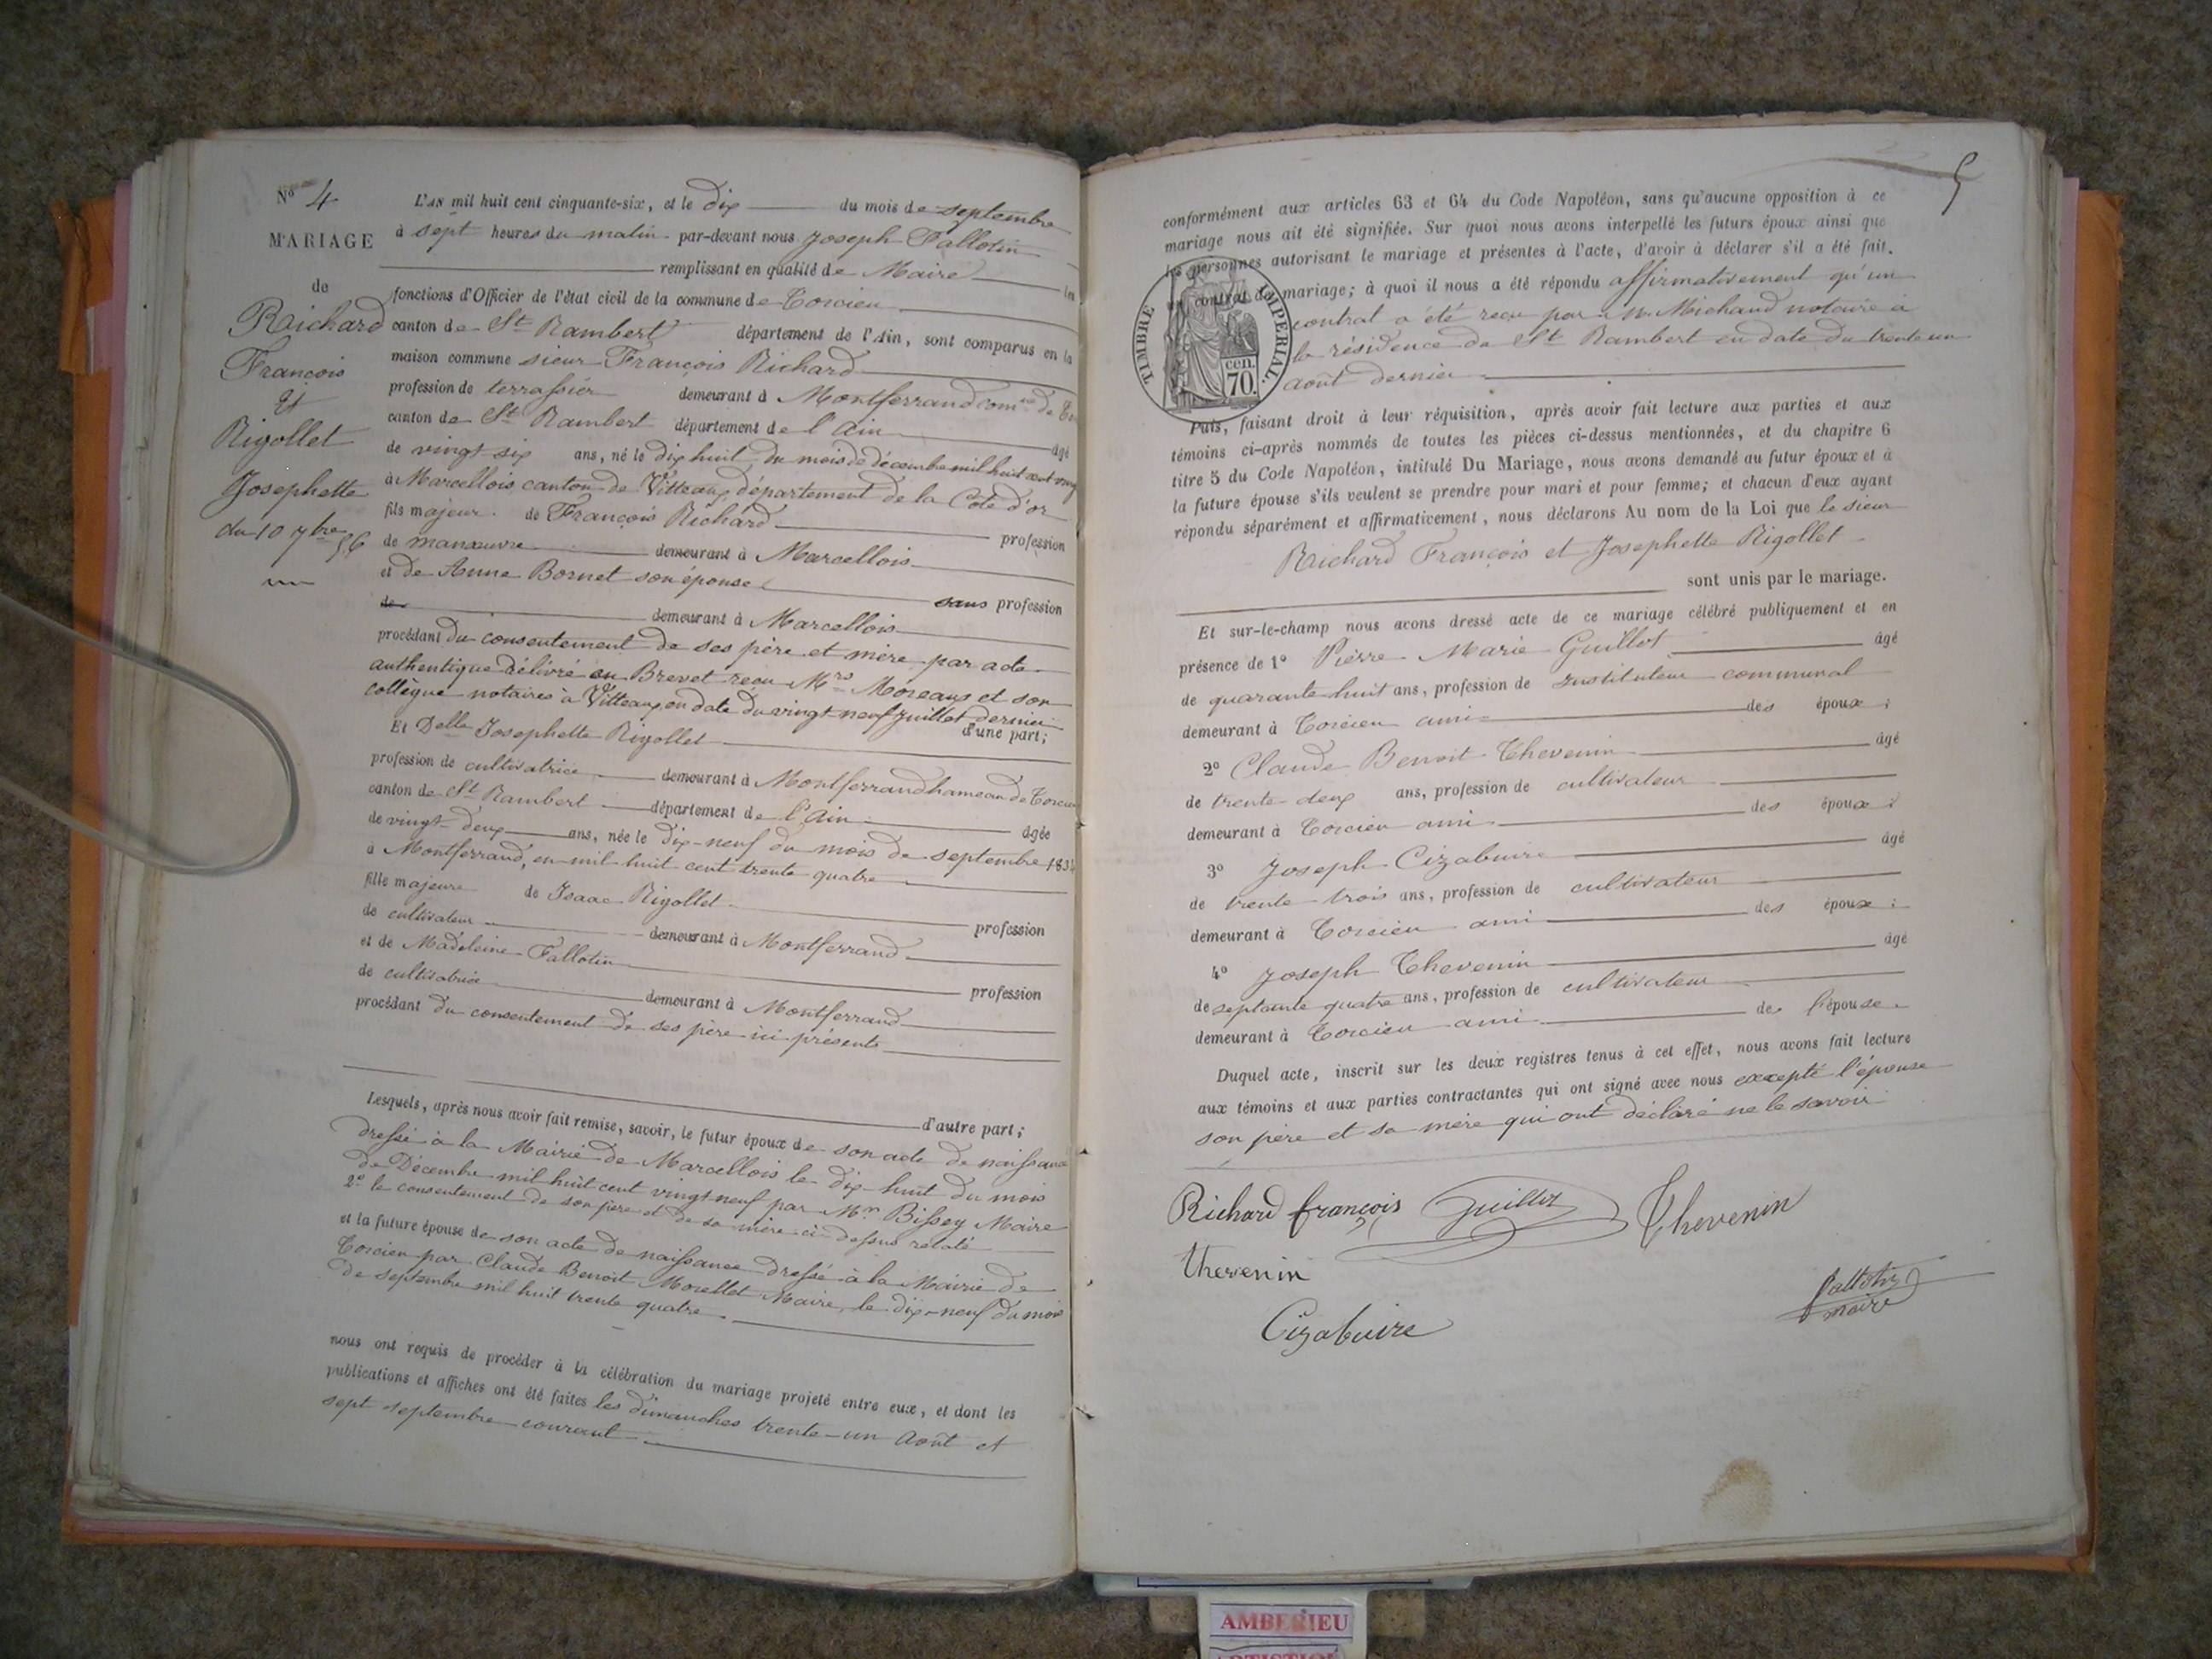 No 4
MARIAGE
de
Richard
François
Et
Rigollet
Josephette
du 10 7bre 56
L'AN mil huit cent cinquante-six, et le dix du mois de septembre
à sept heures du matin par-devant nous Joseph Fallotin
remplissant en qualité de Maire les
fonctions d'Officier de l'état civil de la commune de Torcieu
canton de St Rambert département de l'Ain, sont comparus en la
maison commune sieur François Richard
profession de terrassier demeurant à Montferrand comne de
canton de St Rambert département de l'Ain âgé
de vingt six ans, né le dix huit du mois de décembre mil huit cent
à Marcellois canton de Vitteaux département de la Cote d'or
fils majeur de François Richard profession
de manœuvre demeurant à Marcellois
et de Anne Bornet son épouse sans profession
de demeurant à Marcellois
procédant du consentement de ses père et mère par acte
authentique délivré en Brevet recu Mrs Moreaux et son
collègue notaires à Vitteaux en date du vingt-neuf juillet dernier
d'une part;
Et Delle Josephette Rigollet
profession de cultivatrice demeurant à Montferrand hameau de Torcieu
canton de St Rambert département de l'Ain âgée
de vingt-deux ans, née le dix-neuf du mois de septembre 1834
à Montferrand, en mil huit cent trente quatre
fille majeure de Isaac Rigollet profession
de cultivateur demeurant à Montferrand
et de Madeleine Fallotin profession
de cultivatrice demeurant à Montferrand
procédant du consentement de ses père ici présents
d'autre part;
Lesquels, après nous avoir fait remise, savoir, le futur époux de son acte de naissance
dressé à la Mairie de Marcellois le dix-huit du mois
de Décembre mil huit cent vingt neuf par Mr Bissey Maire
2° le consentement de son père et de sa mère ci-dessus relaté
et la future épouse de son acte de naissance dressé à la Mairie de
Torcieu par Claude Benoit Morellet Maire, le dix-neuf du mois
de septembre mil huit trente quatre
nous ont requis de procéder à la célébration du mariage projeté entre eux, et dont les
publications et affiches ont été faites les dimanches trente-un Août et
sept septembre courant
5
conformément aux articles 63 et 64 du Code Napoléon, sans qu'aucune opposition à ce
mariage nous ait été signifiée. Sur quoi nous avons interpellé les futurs époux ainsi que
les personnes autorisant le mariage et présentes à l'acte, d'avoir à déclarer s'il a été fait.
un contrat de mariage; à quoi il nous a été répondu affirmativement qu'un
contrat a été reçu par Me Michaud notaire à
la résidence de St Rambert en date du trente un
août dernier
TIMBRE IMPERIAL.
cen.
70.
Puis, faisant droit à leur réquisition, après avoir fait lecture aux parties et aux
témoins ci-après nommés de toutes les pièces ci-dessus mentionnées, et du chapitre 6
titre 5 du Code Napoléon, intitulé Du Mariage, nous avons demandé au futur époux et à
la future épouse s'ils veulent se prendre pour mari et pour femme; et chacun d'eux ayant
répondu séparément et affirmativement, nous déclarons Au nom de la Loi que le sieur
Richard François et Josephette Rigollet
sont unis par le mariage.
Et sur-le-champ nous avons dressé acte de ce mariage célébré publiquement et en
présence de 1° Pierre Marie Guillot âgé
de quarante huit ans, profession de Instituteur communal
demeurant à Torcieu ami des époux;
2° Claude Benoit Thevenin âgé
de trente-deux ans, profession de cultivateur
demeurant à Torcieu ami des époux;
3° Joseph Cizabuire âgé
de trente trois ans, profession de cultivateur
demeurant à Torcieu ami des époux;
4° Joseph Thevenin âgé
de septante quatre ans, profession de cultivateur
demeurant à Torcieu ami de l'épouse.
Duquel acte, inscrit sur les deux registres tenus à cet effet, nous avons fait lecture
aux témoins et aux parties contractantes qui ont signé avec nous excepté l'épouse
son père et sa mère qui ont déclaré ne le savoir
Richard françois Guillot Thevenin
Thevenin
fallotin
maire
Cizabuire
AMBERIEU